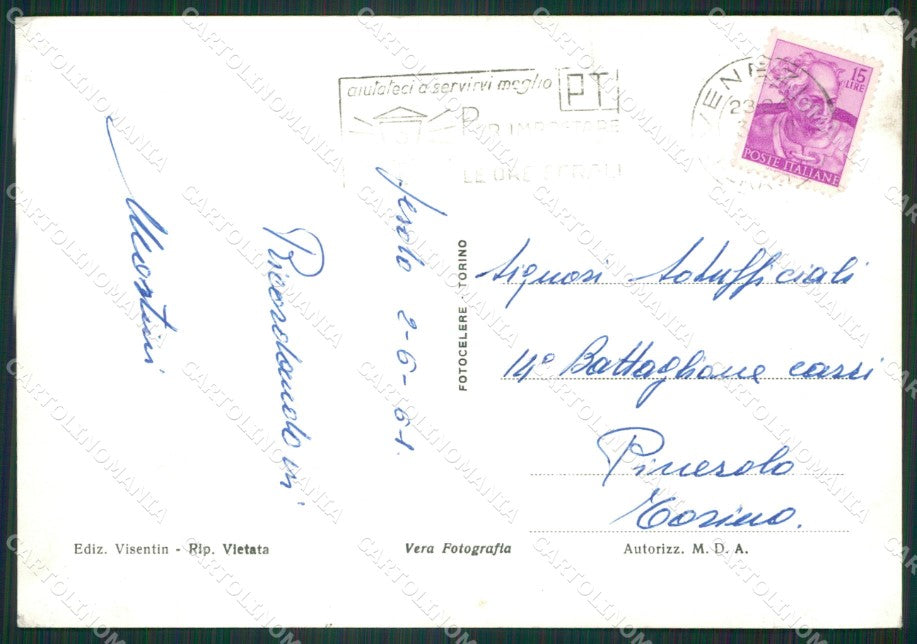 aiutateci a servirvi meglio
PT
PER IMPOSTARE
LE ORE SERALI
VENEZIA
23
15
LIRE
POSTE ITALIANE
Jesolo 2-6-61.
Ricordandovi
Montini
FOTOCELERE TORINO
Signori Sotufficiali
14° Battaglione carri
Pinerolo
Torino.
Ediz. Visentin - Rip. Vietata
Vera Fotografia
Autorizz. M. D. A.
CARTOLINOMANIA